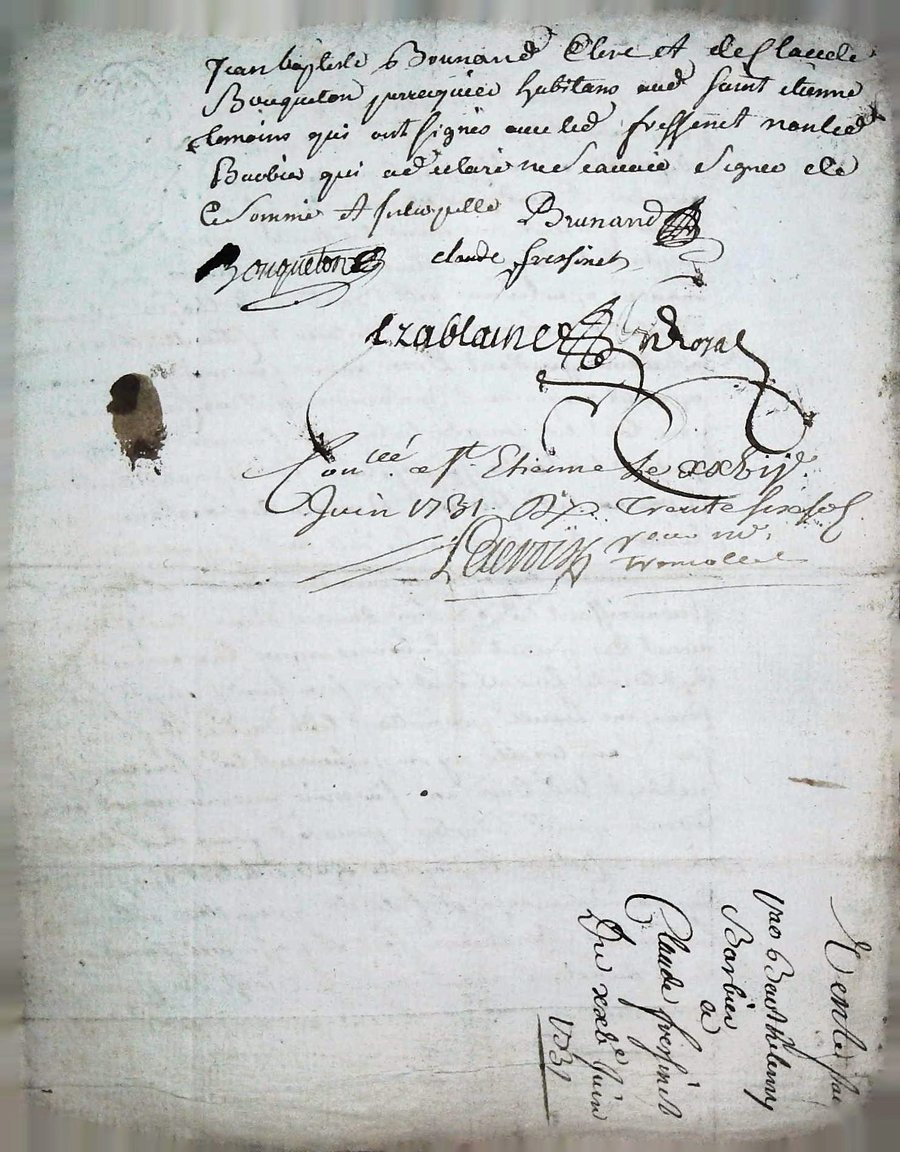 Jean baptiste Brunand Clerc et de Claude
Bouqueton perruquier habitans aud saint etienne
temoins qui ont signés avec led fressinet non led
Barbier qui a declaré ne scavoir signer de
ce sommé et
Brunand
Bouqueton claude fressinet
Royal
Con.lé a St. Etienne le xxbij
Juin 1731. R Trente six sols
pour mr.
Vente
par Barthelemy
Barbier
a
Claude fressinet
Du xxbe Juin
1731